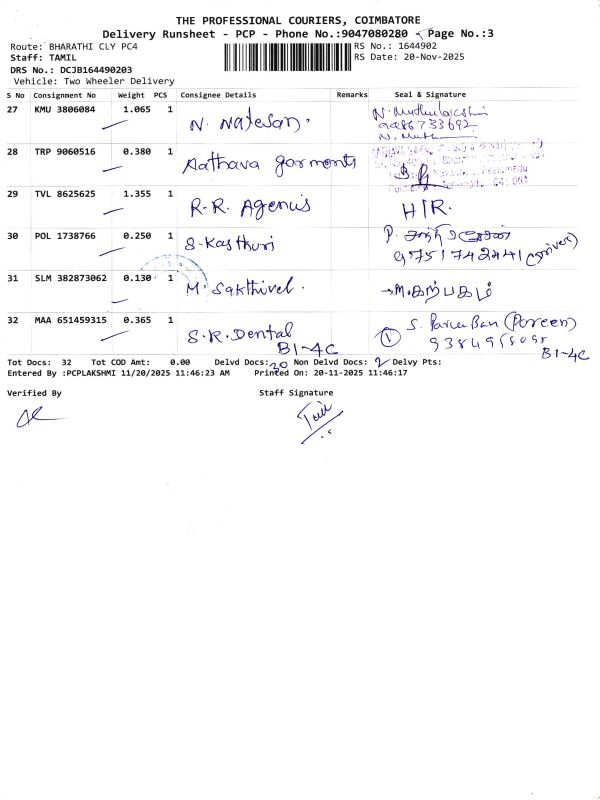 THE PROFESSIONAL COURIERS, COIMBATORE
Delivery Runsheet - PCP - Phone No.:9047080280 Page No.:3
Route: BHARATHI CLY PC4
RS No.: 1644902
Staff: TAMIL
RS Date: 20-Nov-2025
DRS No.: DCJB164490203
Vehicle: Two Wheeler Delivery
S No Consignment No Weight PCS Consignee Details Remarks Seal & Signature
27 KMU 3806084 1.065 1 N. Natesan. N. Muthulakshmi
9486733692
N. Muth
28 TRP 9060516 0.380 1 Aathava garments
29 TVL 8625625 1.355 1 R.R. Agencis H/R.
30 POL 1738766 0.250 1 S. Kasthuri P.
9751742441 (Driver)
31 SLM 382873062 0.130 1 M. Sakthivel. M. கற்பகம்
32 MAA 651459315 0.365 1 S.R. Dental ① S. (Parveen)
B1-4C
B1-4C
Tot Docs: 32 Tot COD Amt: 0.00 Delvd Docs: 30 Non Delvd Docs: 2 Delvy Pts:
Entered By :PCPLAKSHMI 11/20/2025 11:46:23 AM Printed On: 20-11-2025 11:46:17
Verified By Staff Signature